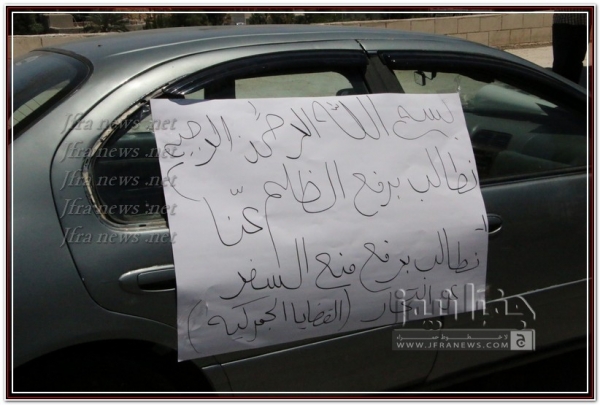 بسم الله الرحمن الرحيم
نطالب برفع الظلم عنّا
نطالب برفع منع السفر
عن التجار (القضايا الجمركية)
Jfra news .net
Jfra news .net
Jfra news .net
Jfra news .net
Jfra news .net
جفرا نيوز
WWW.JFRANEWS.COM